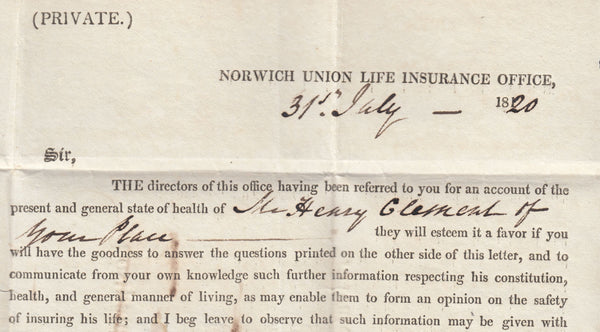 (PRIVATE.)
NORWICH UNION LIFE INSURANCE OFFICE,
31st. July — 1820
Sir,
THE directors of this office having been referred to you for an account of the
present and general state of health of Mr Henry Clement of
Your Place they will esteem it a favor if you
will have the goodness to answer the questions printed on the other side of this letter, and to
communicate from your own knowledge such further information respecting his constitution,
health, and general manner of living, as may enable them to form an opinion on the safety
of insuring his life; and I beg leave to observe that such information may be given with